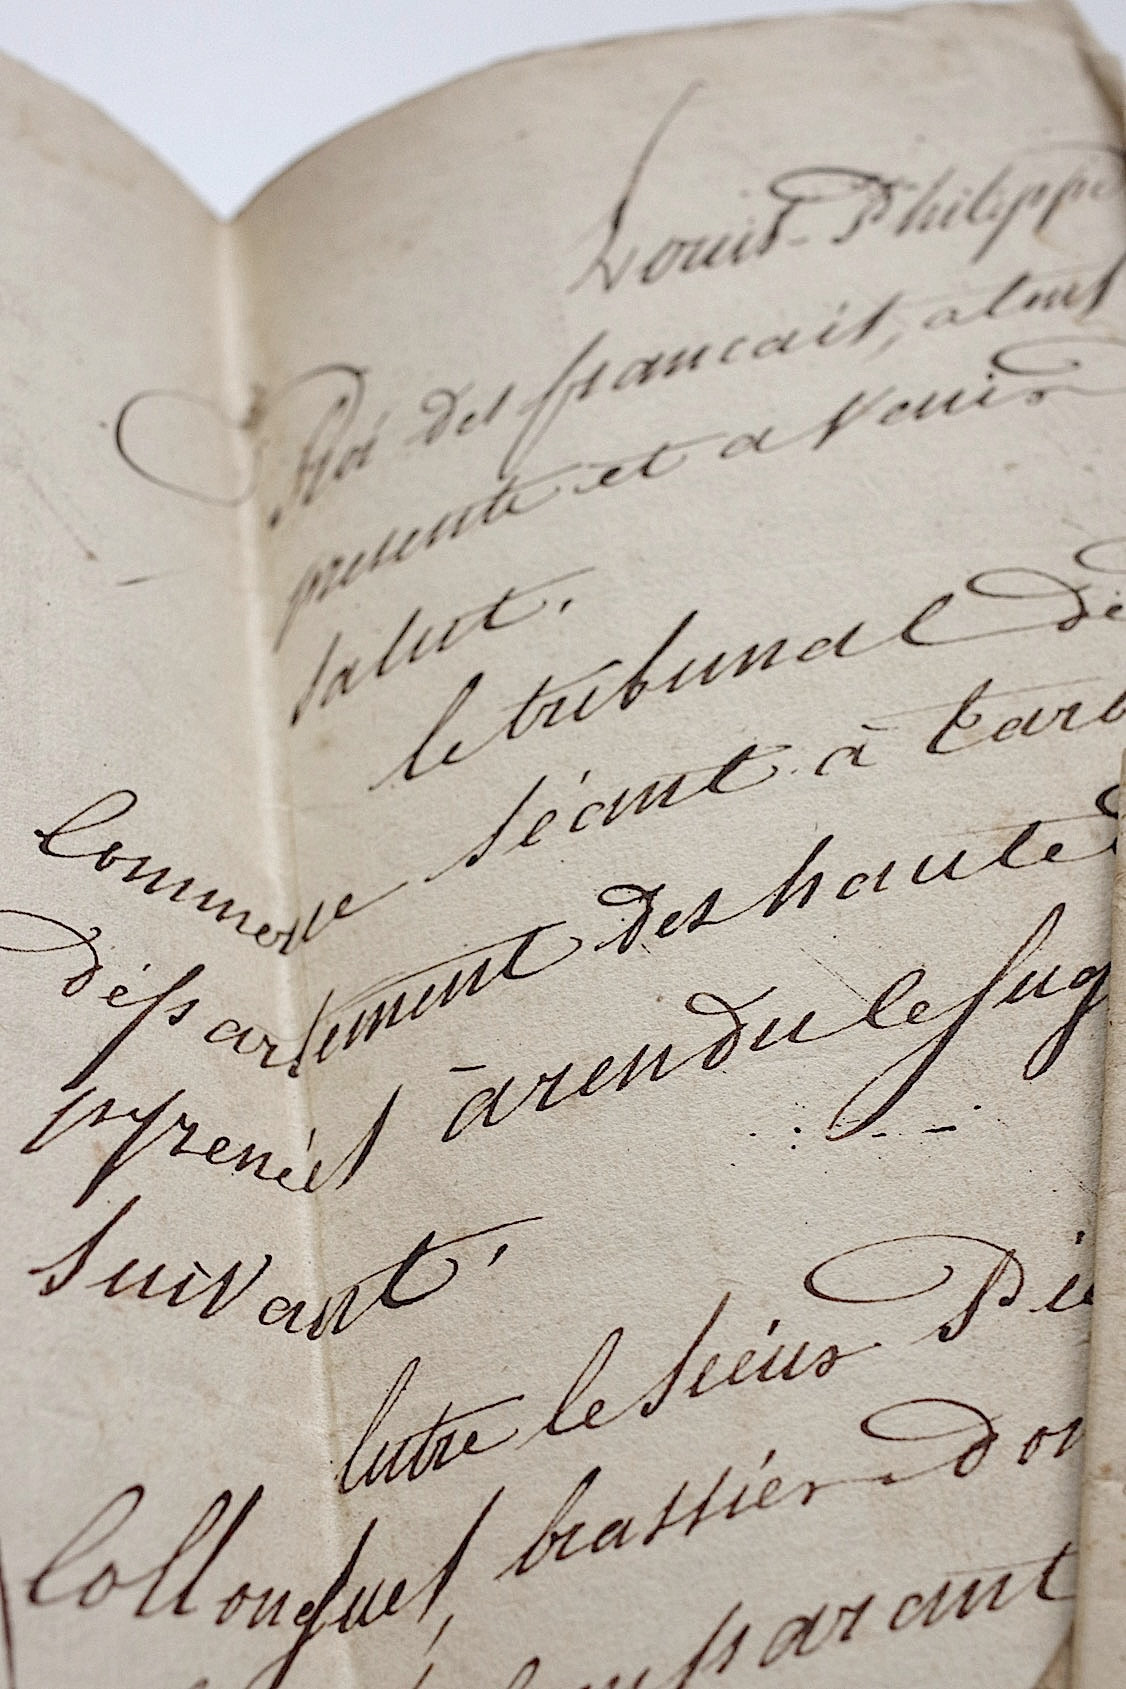 Louis-Philippe
Roi des francais, a tous
presente et a Venir
Salut.
le tribunal de
Commerce séant à tarb
département des haute
pyrenéés à rendu le Jug
Suivant,
Entre le Siéur Pie
Collongues, brassier dom
comparant